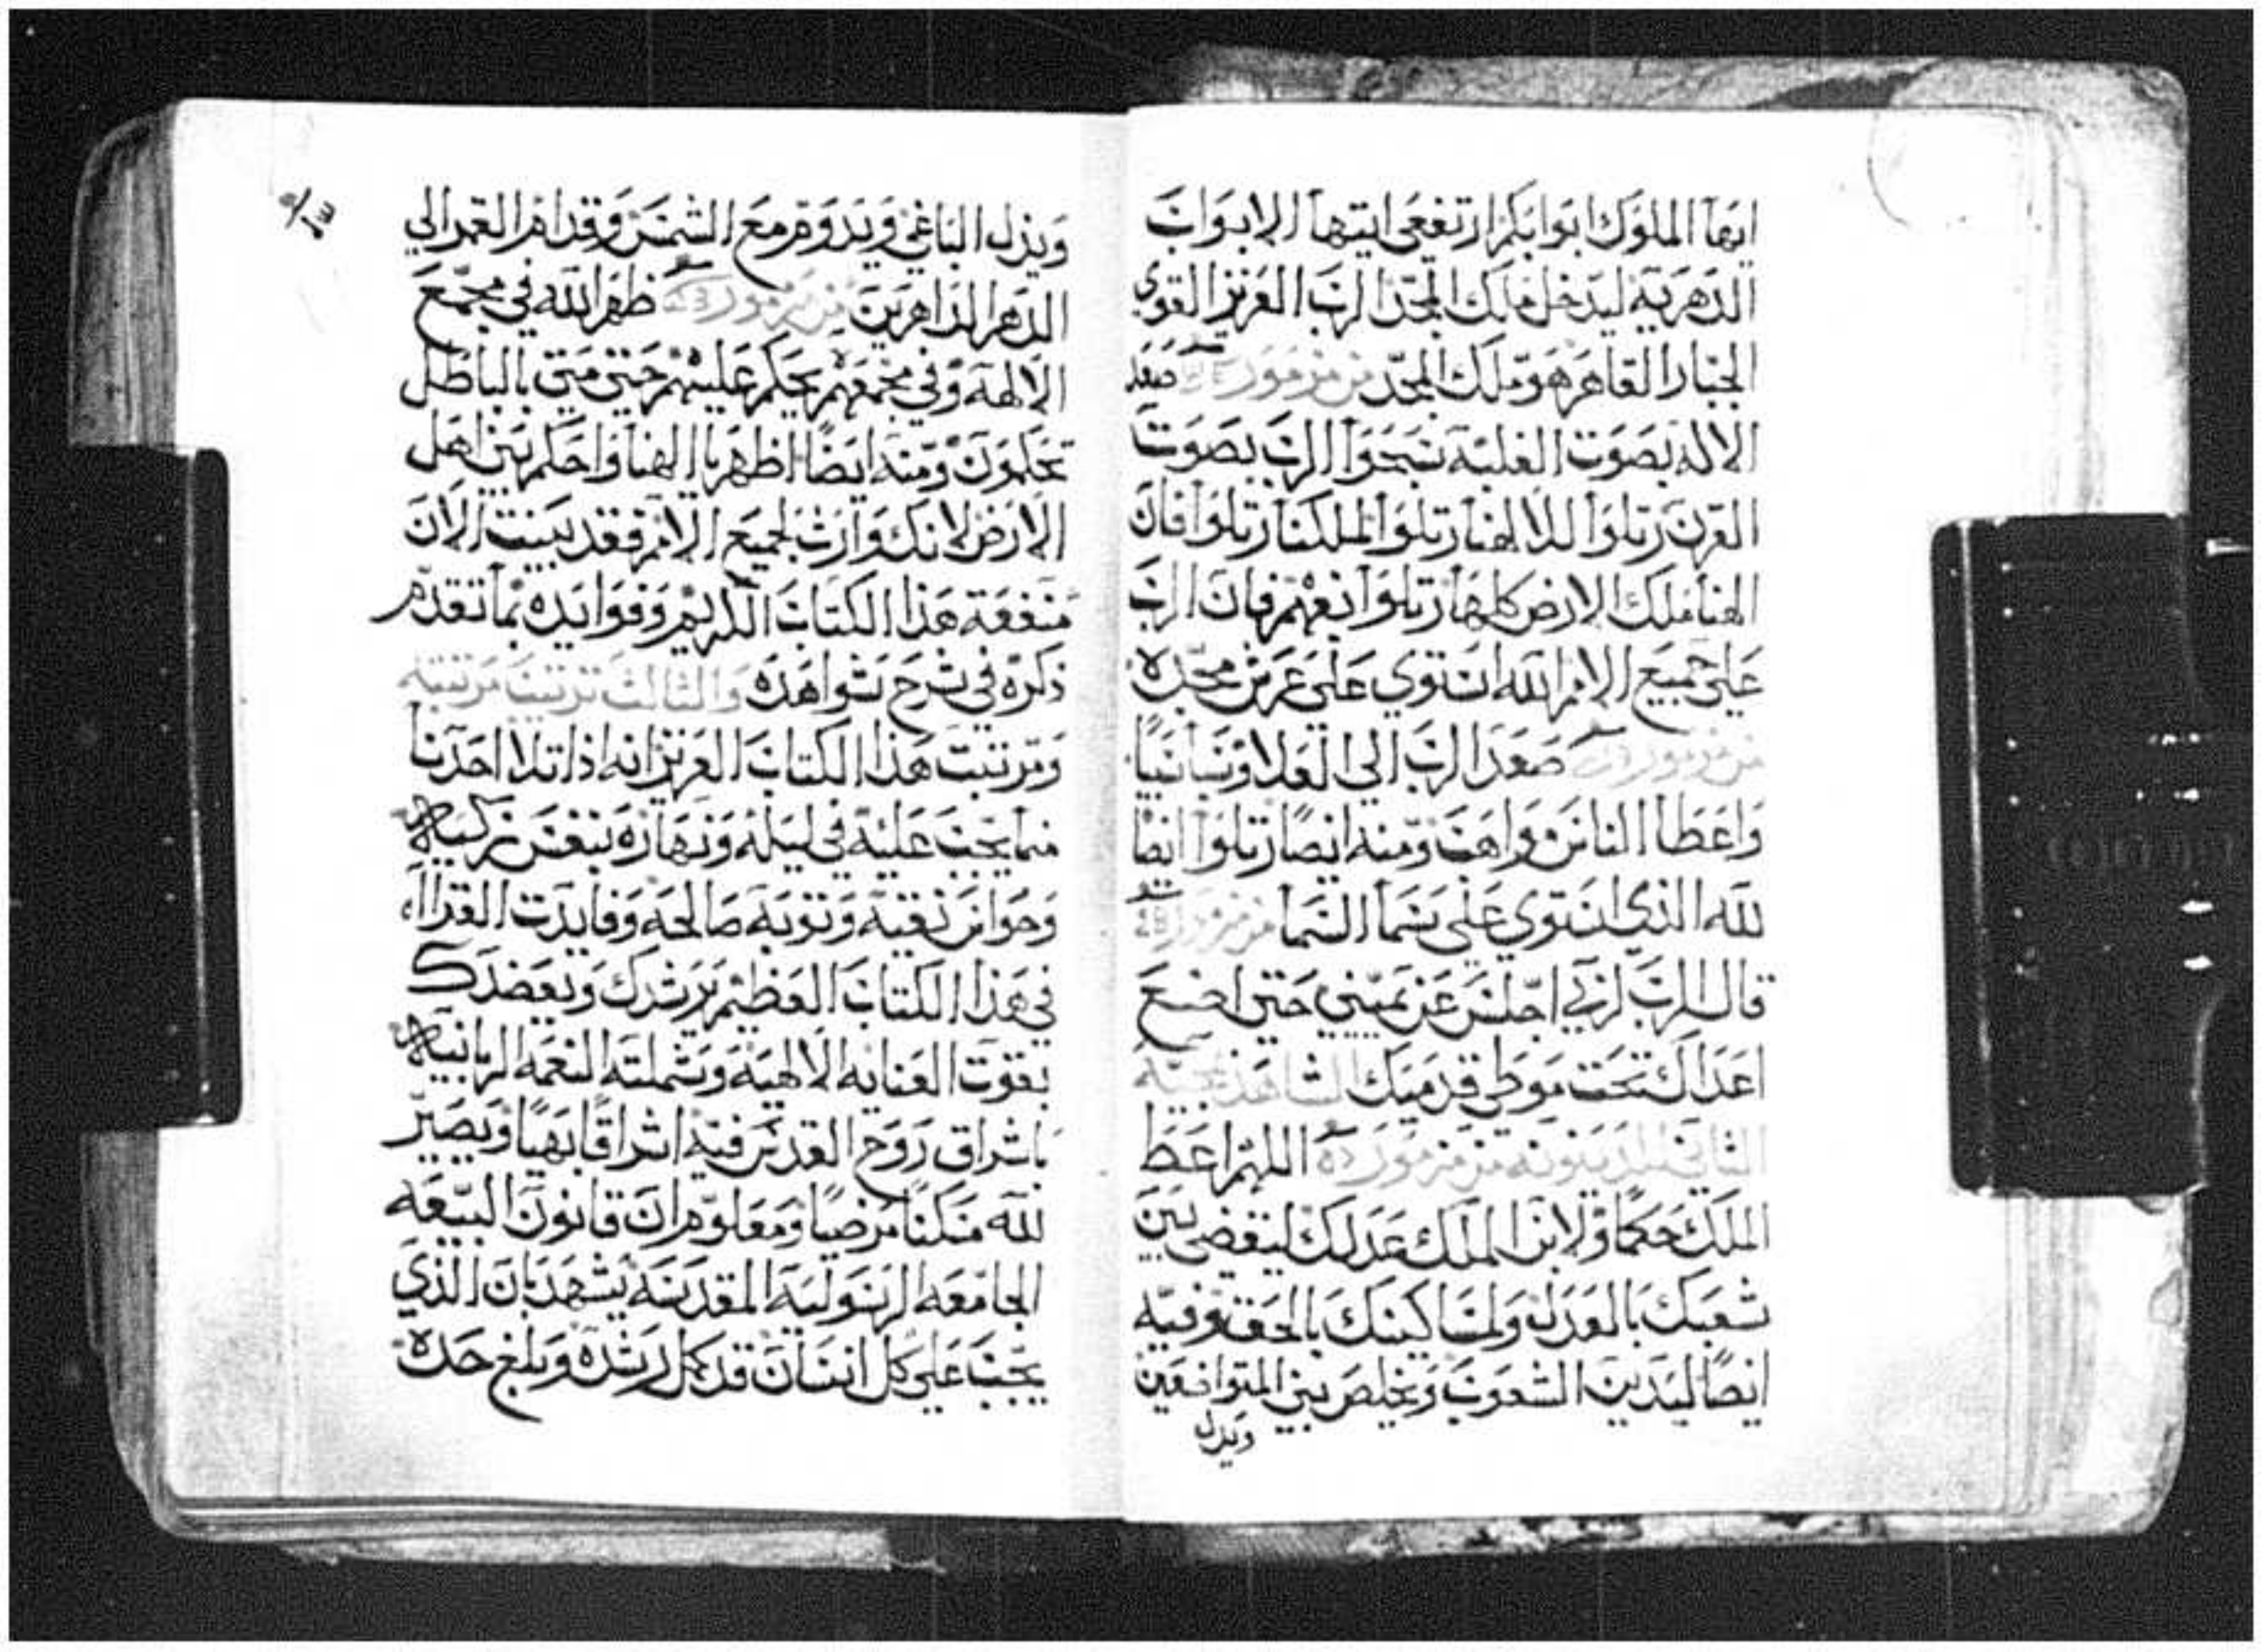 ايها الملوك ابوابكم ارتفعي ايتها الابواب
الدهرية ليدخل ملك المجد الرب العزيز القوي
الجبار القاهر هو ملك المجد من مزمور صعد
الاله بصوت الغلبه سبحوا الرب بصوت
القرن رتلوا لالاهنا رتلوا لملكنا رتلوا فان
الهنا ملك الارض كلها رتلوا بفهم فان الرب
علي جميع الامم الله استوي علي عرش مجده
من مزمور صعد الرب الي العلا وسبا سبيا
واعطا الناس مواهب ومنه ايضا رتلوا ايضا
لله الذي استوي علي سما السما من مزمور
قال الرب لربي اجلس عن يميني حتي اضع
اعداك تحت موطي قدميك الشاهد بمجيه
الثاني للدينونه من مزمور اللهم اعط
الملك حكما ولابن الملك عدلك ليقضي بين
شعبك بالعدل ولمساكينك بالحق وفيه
ايضا ليدين الشعوب ويخلص بني المتواضعين
ويذل
ويذل الباغي ويدوم مع الشمس وقدام القمر الي
الدهر الداهرين من مزمور ظهر الله في مجمع
الالهة وفي مجمعهم يحكم عليهم حتي متي بالباطل
تحكمون ومنه ايضا اظهر يا الهنا واحكم بين اهل
الارض لانك وارث لجميع الامم فقد بينت الان
منفعة هذا الكتاب الكريم وفوايده بما تقدم
ذكره في شرح شواهده والثالث ترتيب مرتبته
ومرتبت هذا الكتاب العزيز انه اذا تلا احدنا
منما يجب عليه في ليله ونهاره بنفس زكيه
وحواس نقيه وتوبه صالحه وفايدت القراه
في هذا الكتاب العظيم يرشدك ويعضدك
بقوت العنايه الالاهيه وشملته النعمه الربانيه
باشراق روح القدس فيه اشراقا بهيا ويصير
لله مسكنا مرضيا ومعلوم ان قانون البيعه
الجامعه الرسوليه المقدسه يشهد بان الذي
يجب علي كل انسان قد كمل رشده وبلغ حده